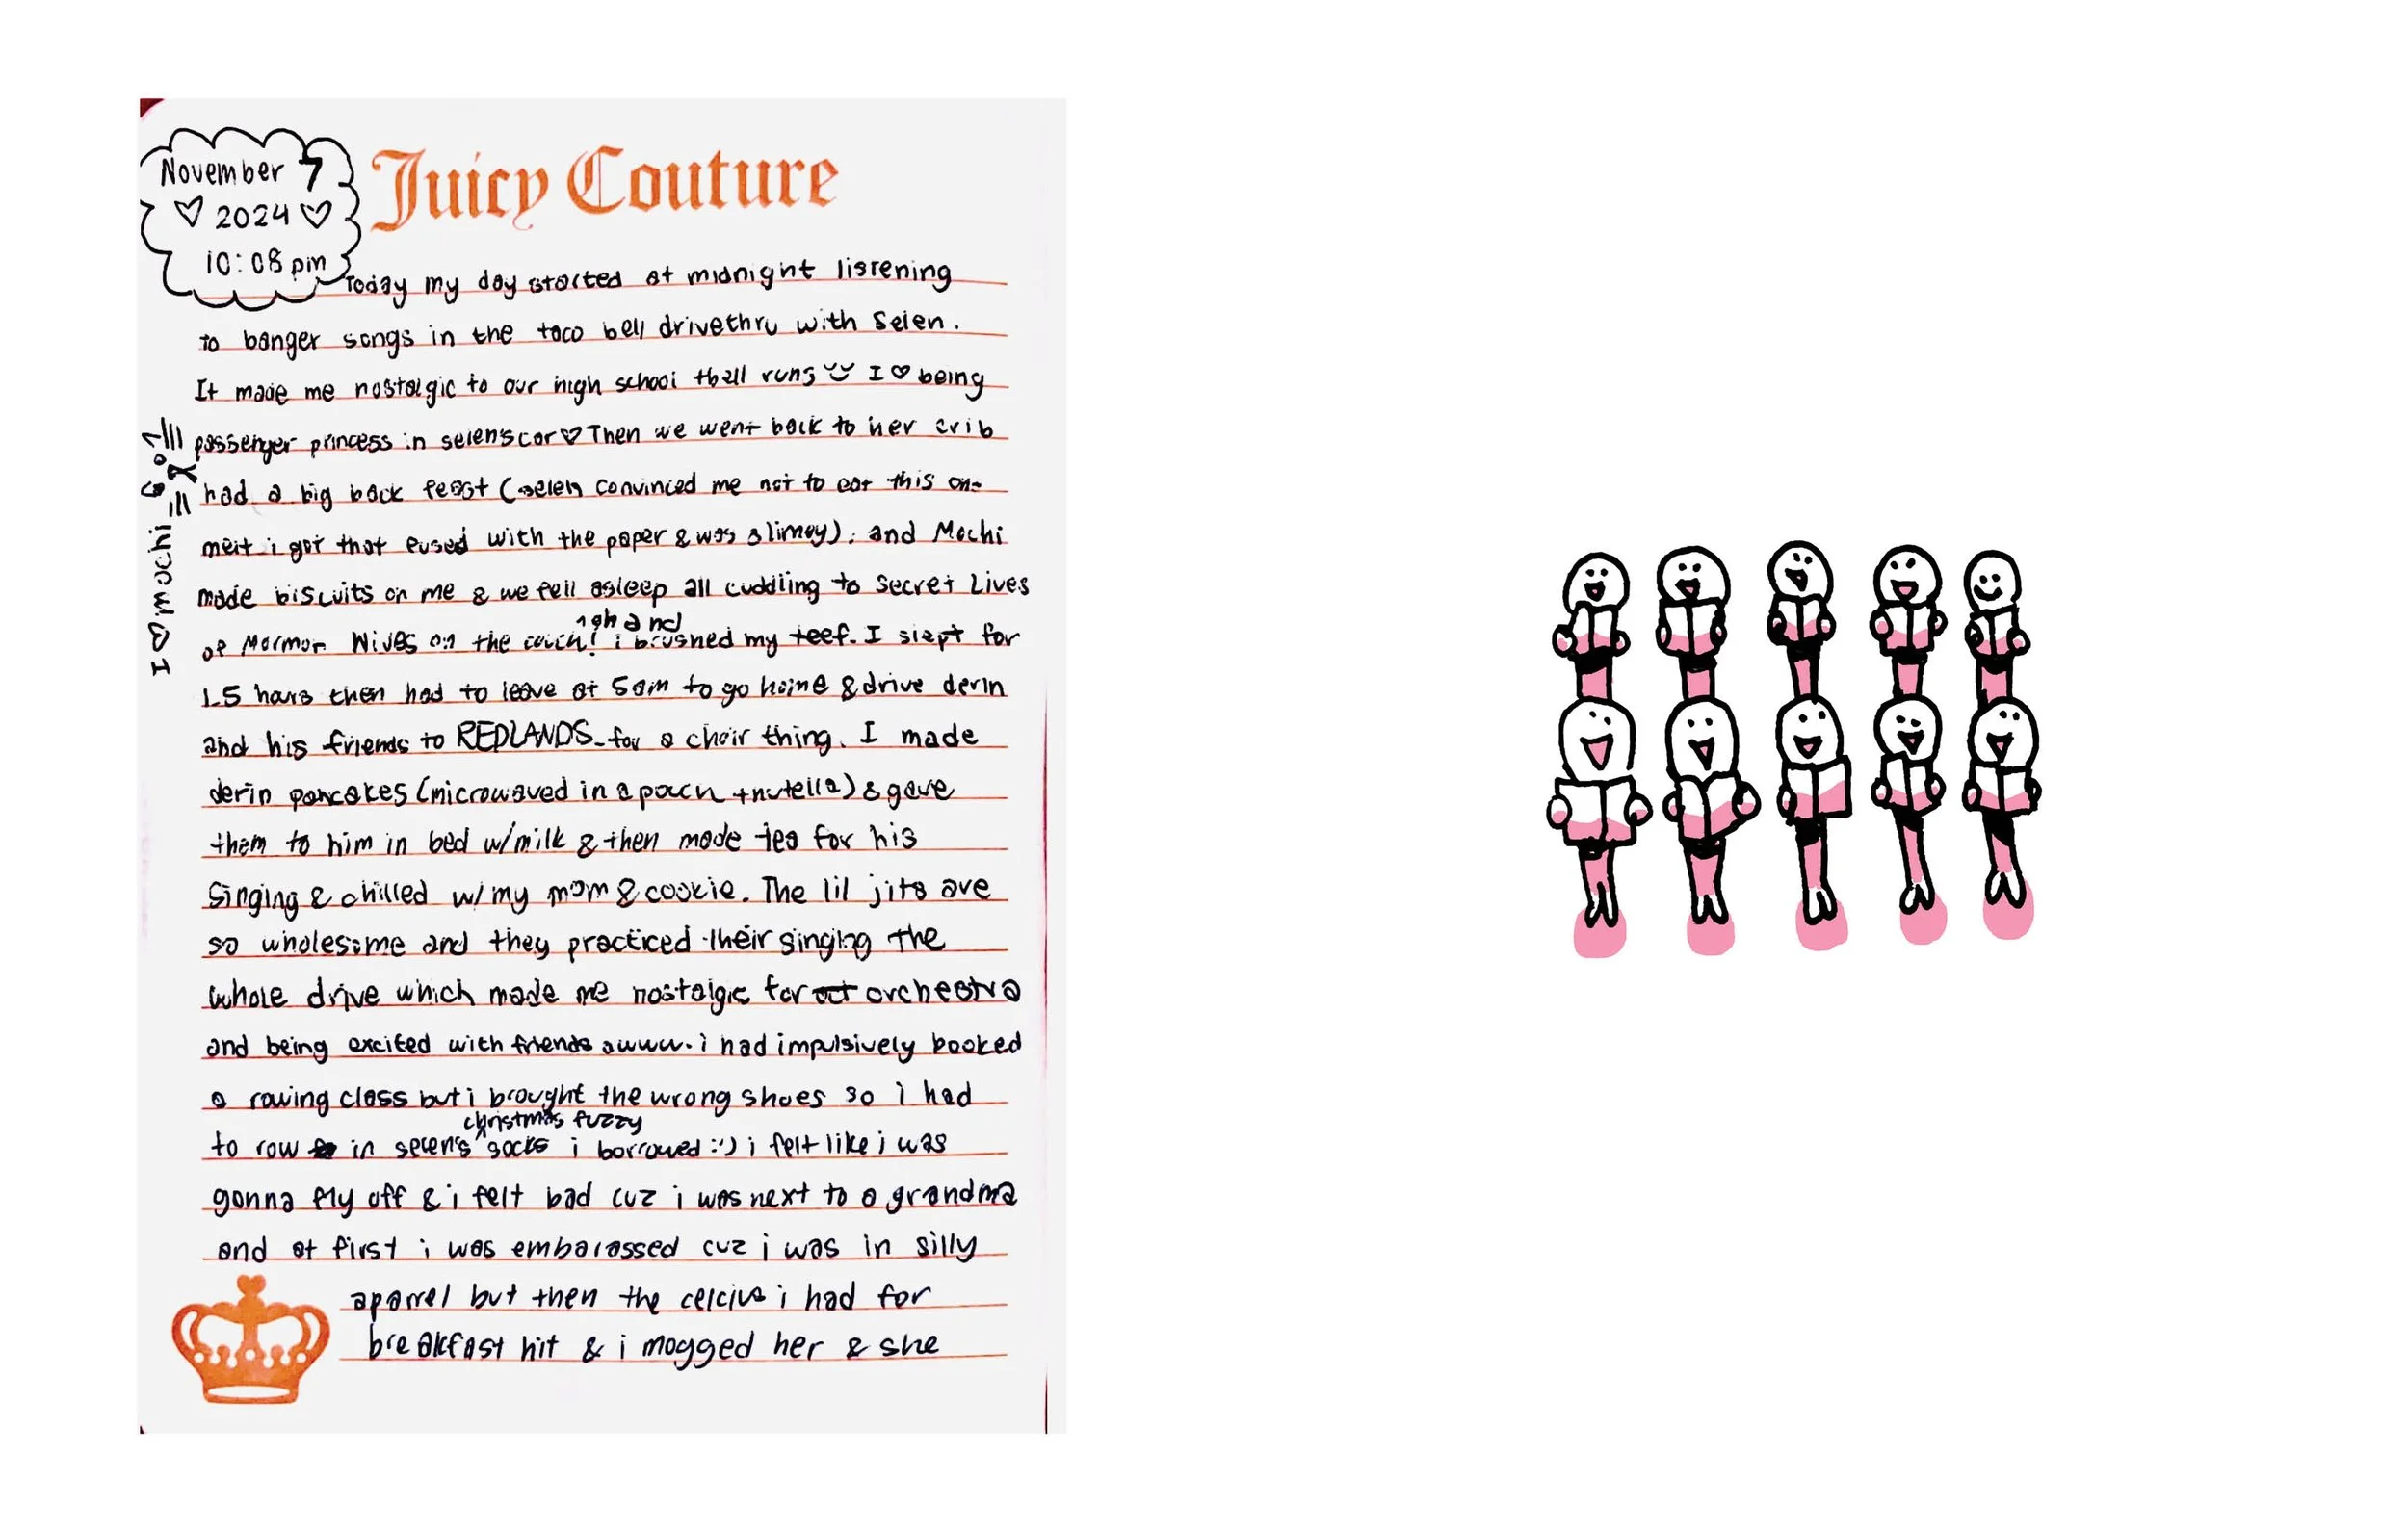 November 7
♡ 2024 ♡
10:08 pm
Juicy Couture
Today my day started at midnight listening
to banger songs in the taco bell drivethru with Selen.
It made me nostalgic to our high school tbell runs I ♡ being
passenger princess in selens car ♡ Then we went back to her crib
had a big back feast (selen convinced me not to eat this one
melt i got that fused with the paper & was slimey). and Mochi
made biscuits on me & we fell asleep all cuddling to Secret Lives
ngh and
of Mormon Wives on the couch! i brushed my teef. I slept for
1.5 hours then had to leave at 5am to go home & drive derin
and his friends to REDLANDS for a choir thing. I made
derin pancakes (microwaved in a pouch + nutella) & gave
them to him in bed w/milk & then made tea for his
singing & chilled w/ my mom & cookie. The lil jits are
so wholesome and they practiced their singing the
whole drive which made me nostalgic for orchestra
and being excited with friends awww. i had impulsively booked
a rowing class but i brought the wrong shoes so i had
christmas fuzzy
to row in selen's socks i borrowed :') i felt like i was
gonna fly off & i felt bad cuz i was next to a grandma
and at first i was embarassed cuz i was in silly
aparrel but then the celcius i had for
breakfast hit & i mogged her & she
I ♡ mochi